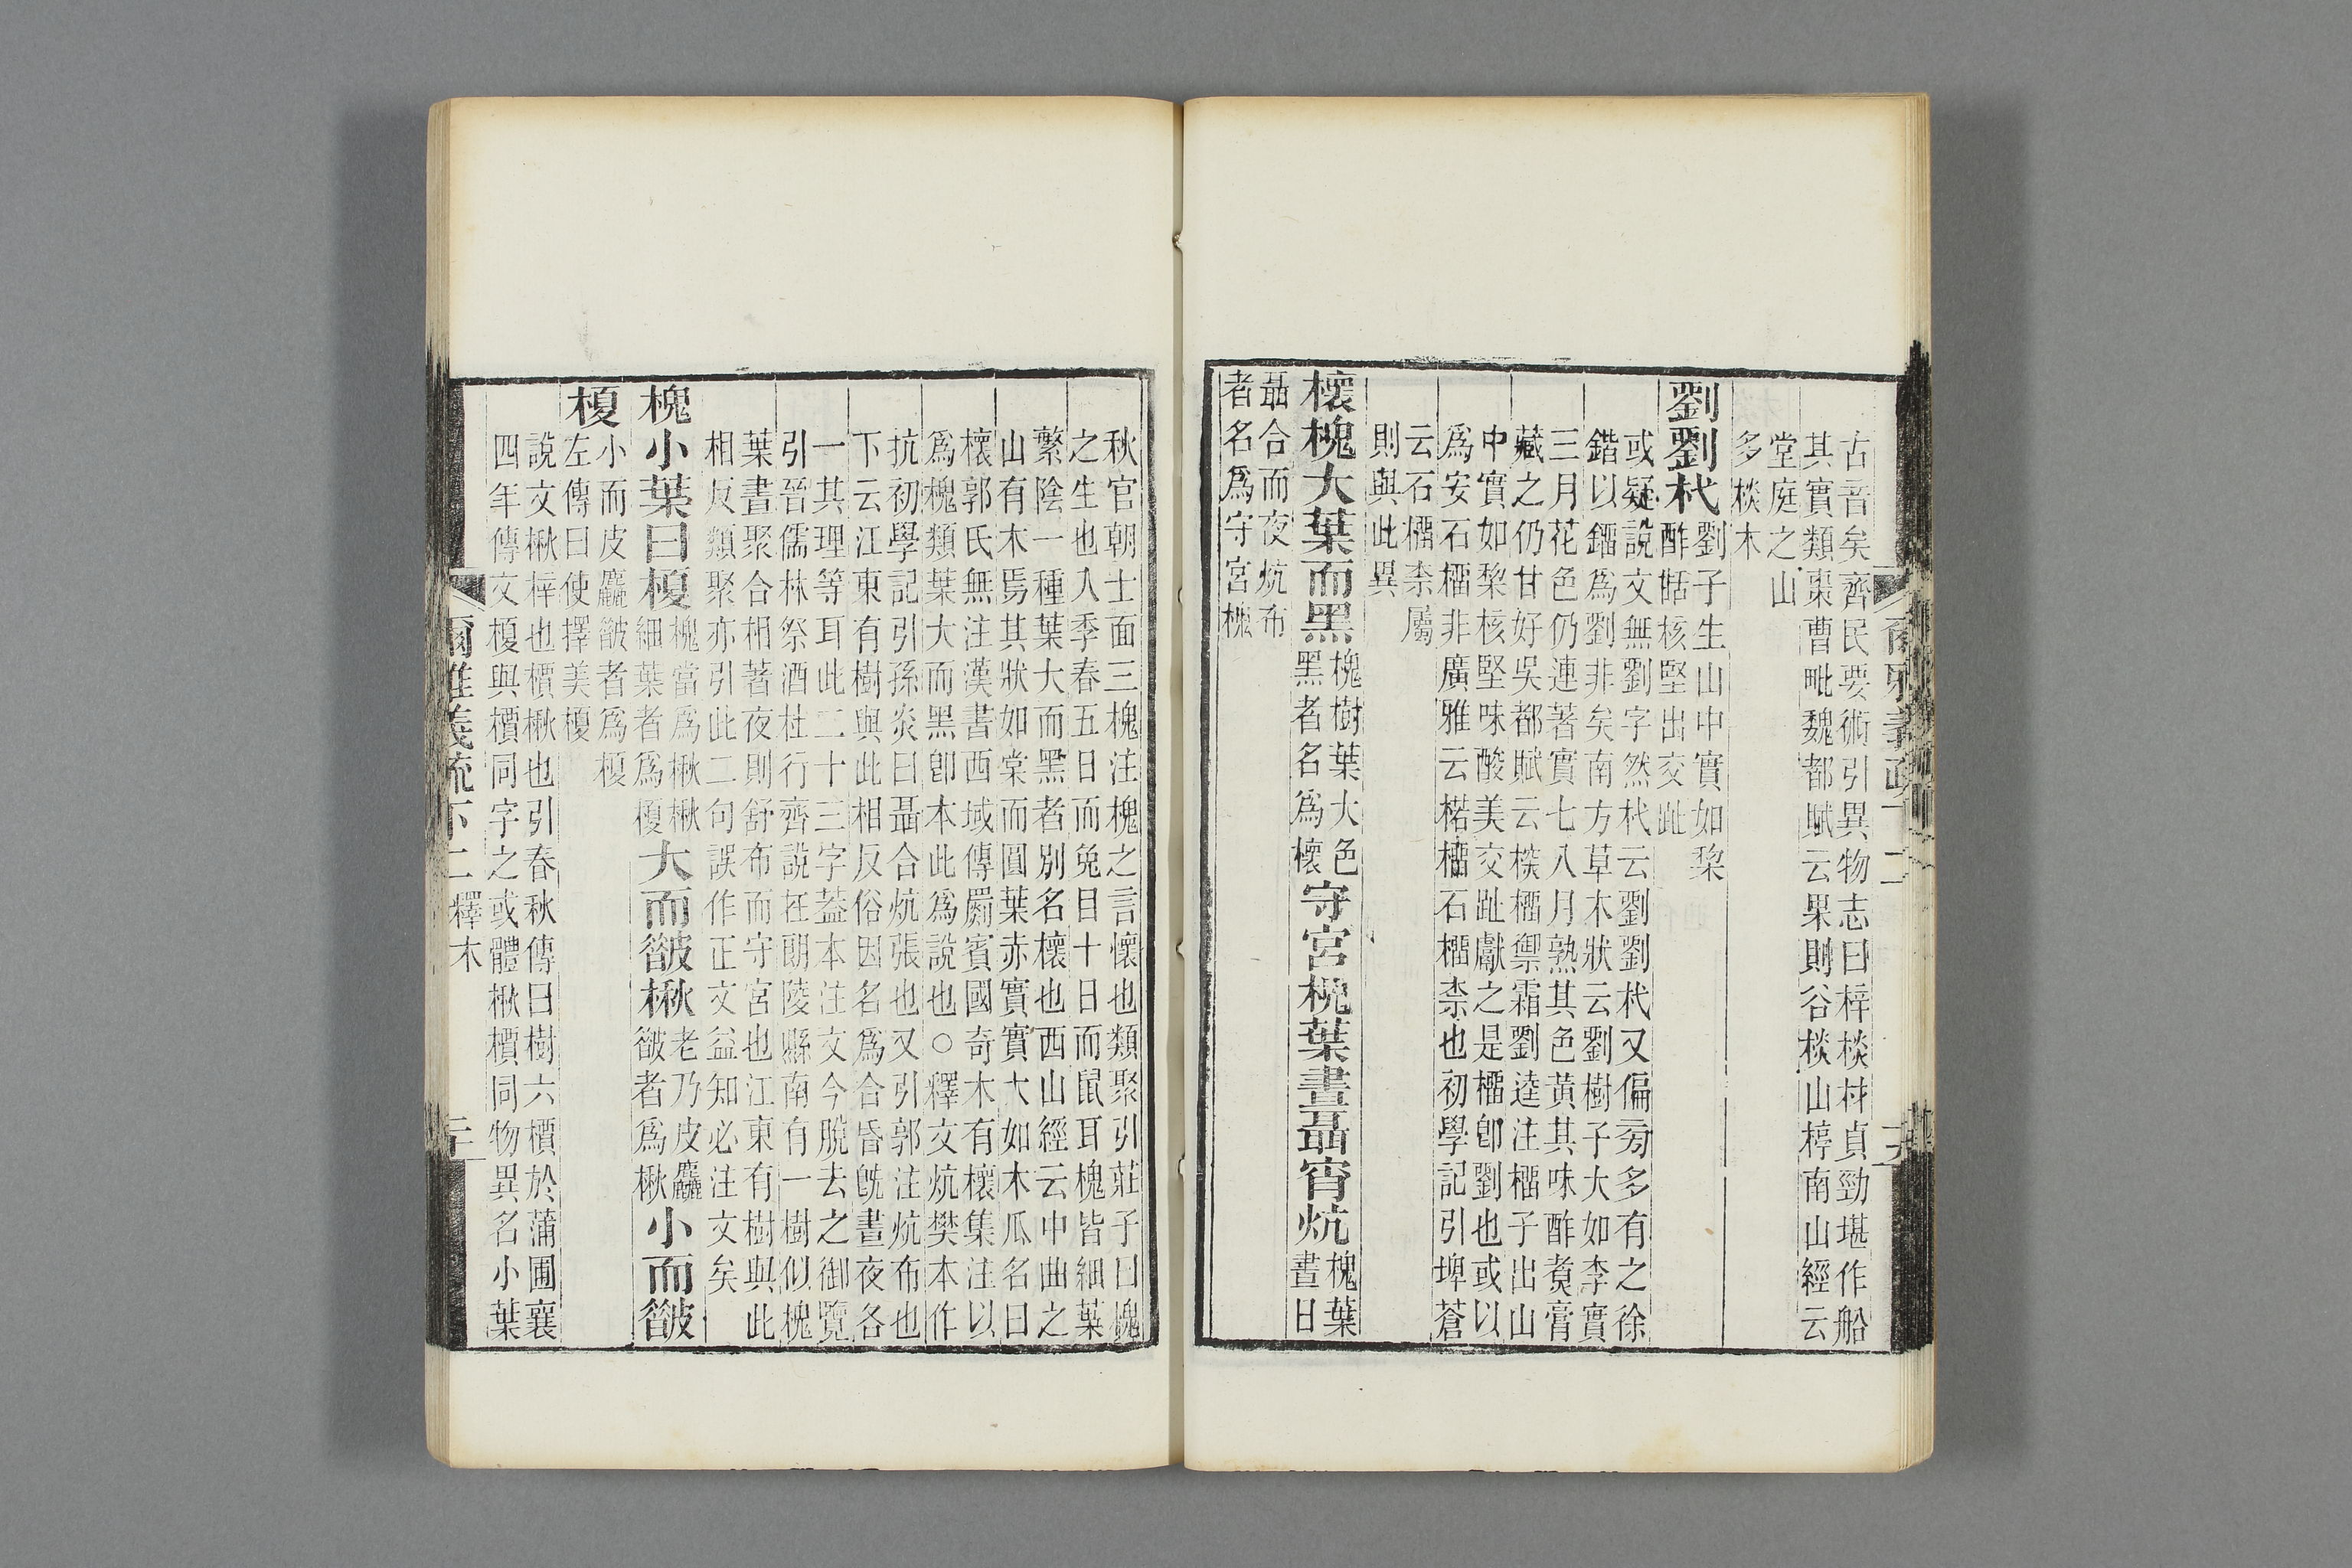 古音矣齊民要術引異物志曰梓棪材貞勁堪作船
其實類棗曹毗魏都賦云果則谷棪山楟南山經云
堂庭之山
多棪木
劉劉杙
劉子生山中實如棃
酢䑛核堅出交趾
或疑說文無劉字然杙云劉劉杙又偏旁多有之徐
鍇以鎦爲劉非矣南方草木狀云劉樹子大如李實
三月花色仍連著實七八月熟其色黃其味酢煑膏
藏之仍甘好吳都賦云棎橊禦霜劉逵注橊子出山
中實如棃核堅味酸美交趾獻之是橊卽劉也或以
爲安石橊非廣雅云楉橊石橊柰也初學記引埤蒼
云石橊柰屬
則與此異
櫰槐大葉而黑
槐樹葉大色
黑者名爲櫰
守宮槐葉晝聶宵炕
槐葉
晝日
聶合而夜炕布
者名爲守宮槐
秋官朝士面三槐注槐之言懷也類聚引莊子曰槐
之生也入季春五日而兔目十日而鼠耳槐皆細葉
繁陰一種葉大而黑者別名櫰也西山經云中曲之
山有木焉其狀如棠而圓葉赤實實大如木瓜名曰
櫰郭氏無注漢書西域傳罽賓國奇木有櫰集注以
爲槐類葉大而黑卽本此爲說也○釋文炕樊本作
抗初學記引孫炎曰聶合炕張也又引郭注炕布也
下云江東有樹與此相反俗因名爲合昏旣晝夜各
一其理等耳此二十三字葢本注文今脫去之御覽
引晉儒林祭酒杜行齊說在朗陵縣南有一樹似槐
葉晝聚合相著夜則舒布而守宮也江東有樹與此
相反類聚亦引此二句誤作正文益知必注文矣
槐小葉曰榎
槐當爲楸楸
細葉者爲榎
大而皵楸
老乃皮麤
皵者爲楸
小而皵
榎
小而皮麤皵者爲榎
左傳曰使擇美榎
說文楸梓也檟楸也引春秋傳曰樹六檟於蒲圃襄
四年傳文榎與檟同字之或體楸檟同物異名小葉
爾雅義疏下二 釋木